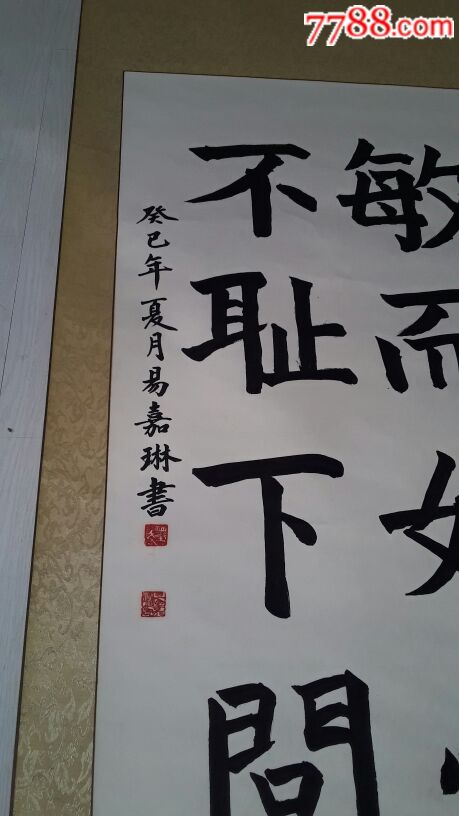 7788.com
敏而好
不耻下問
癸巳年夏月易嘉琳書